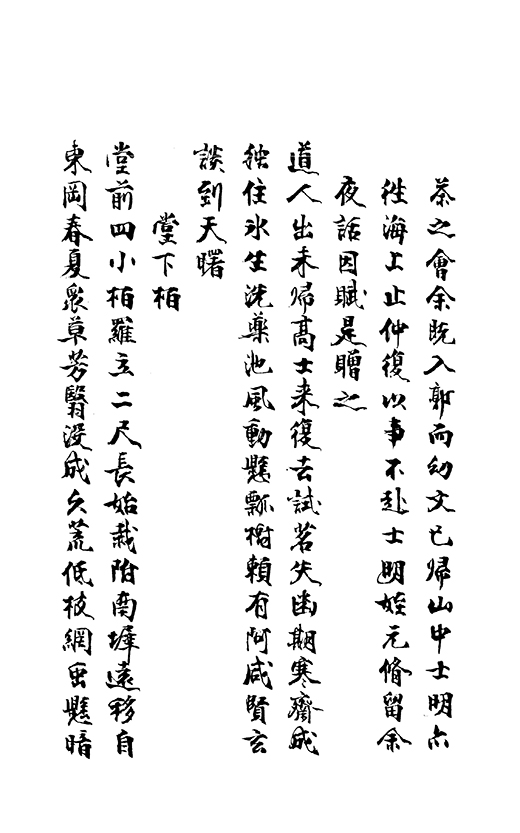 茶之會余既入郭而幼文已歸山中士明亦
往海上止仲復以事不赴士明姪元脩留余
夜話因賦是贈之
道人出未歸高士来復去試茗失幽期寒齋成
独住氷生洗藥池風動懸瓢樹頼有阿咸賢玄
談到天曙
堂下柏
堂前四小柏羅立二尺長始栽階南墀遠移自
東岡春夏衆草芳翳没成久荒低枝網虫懸暗